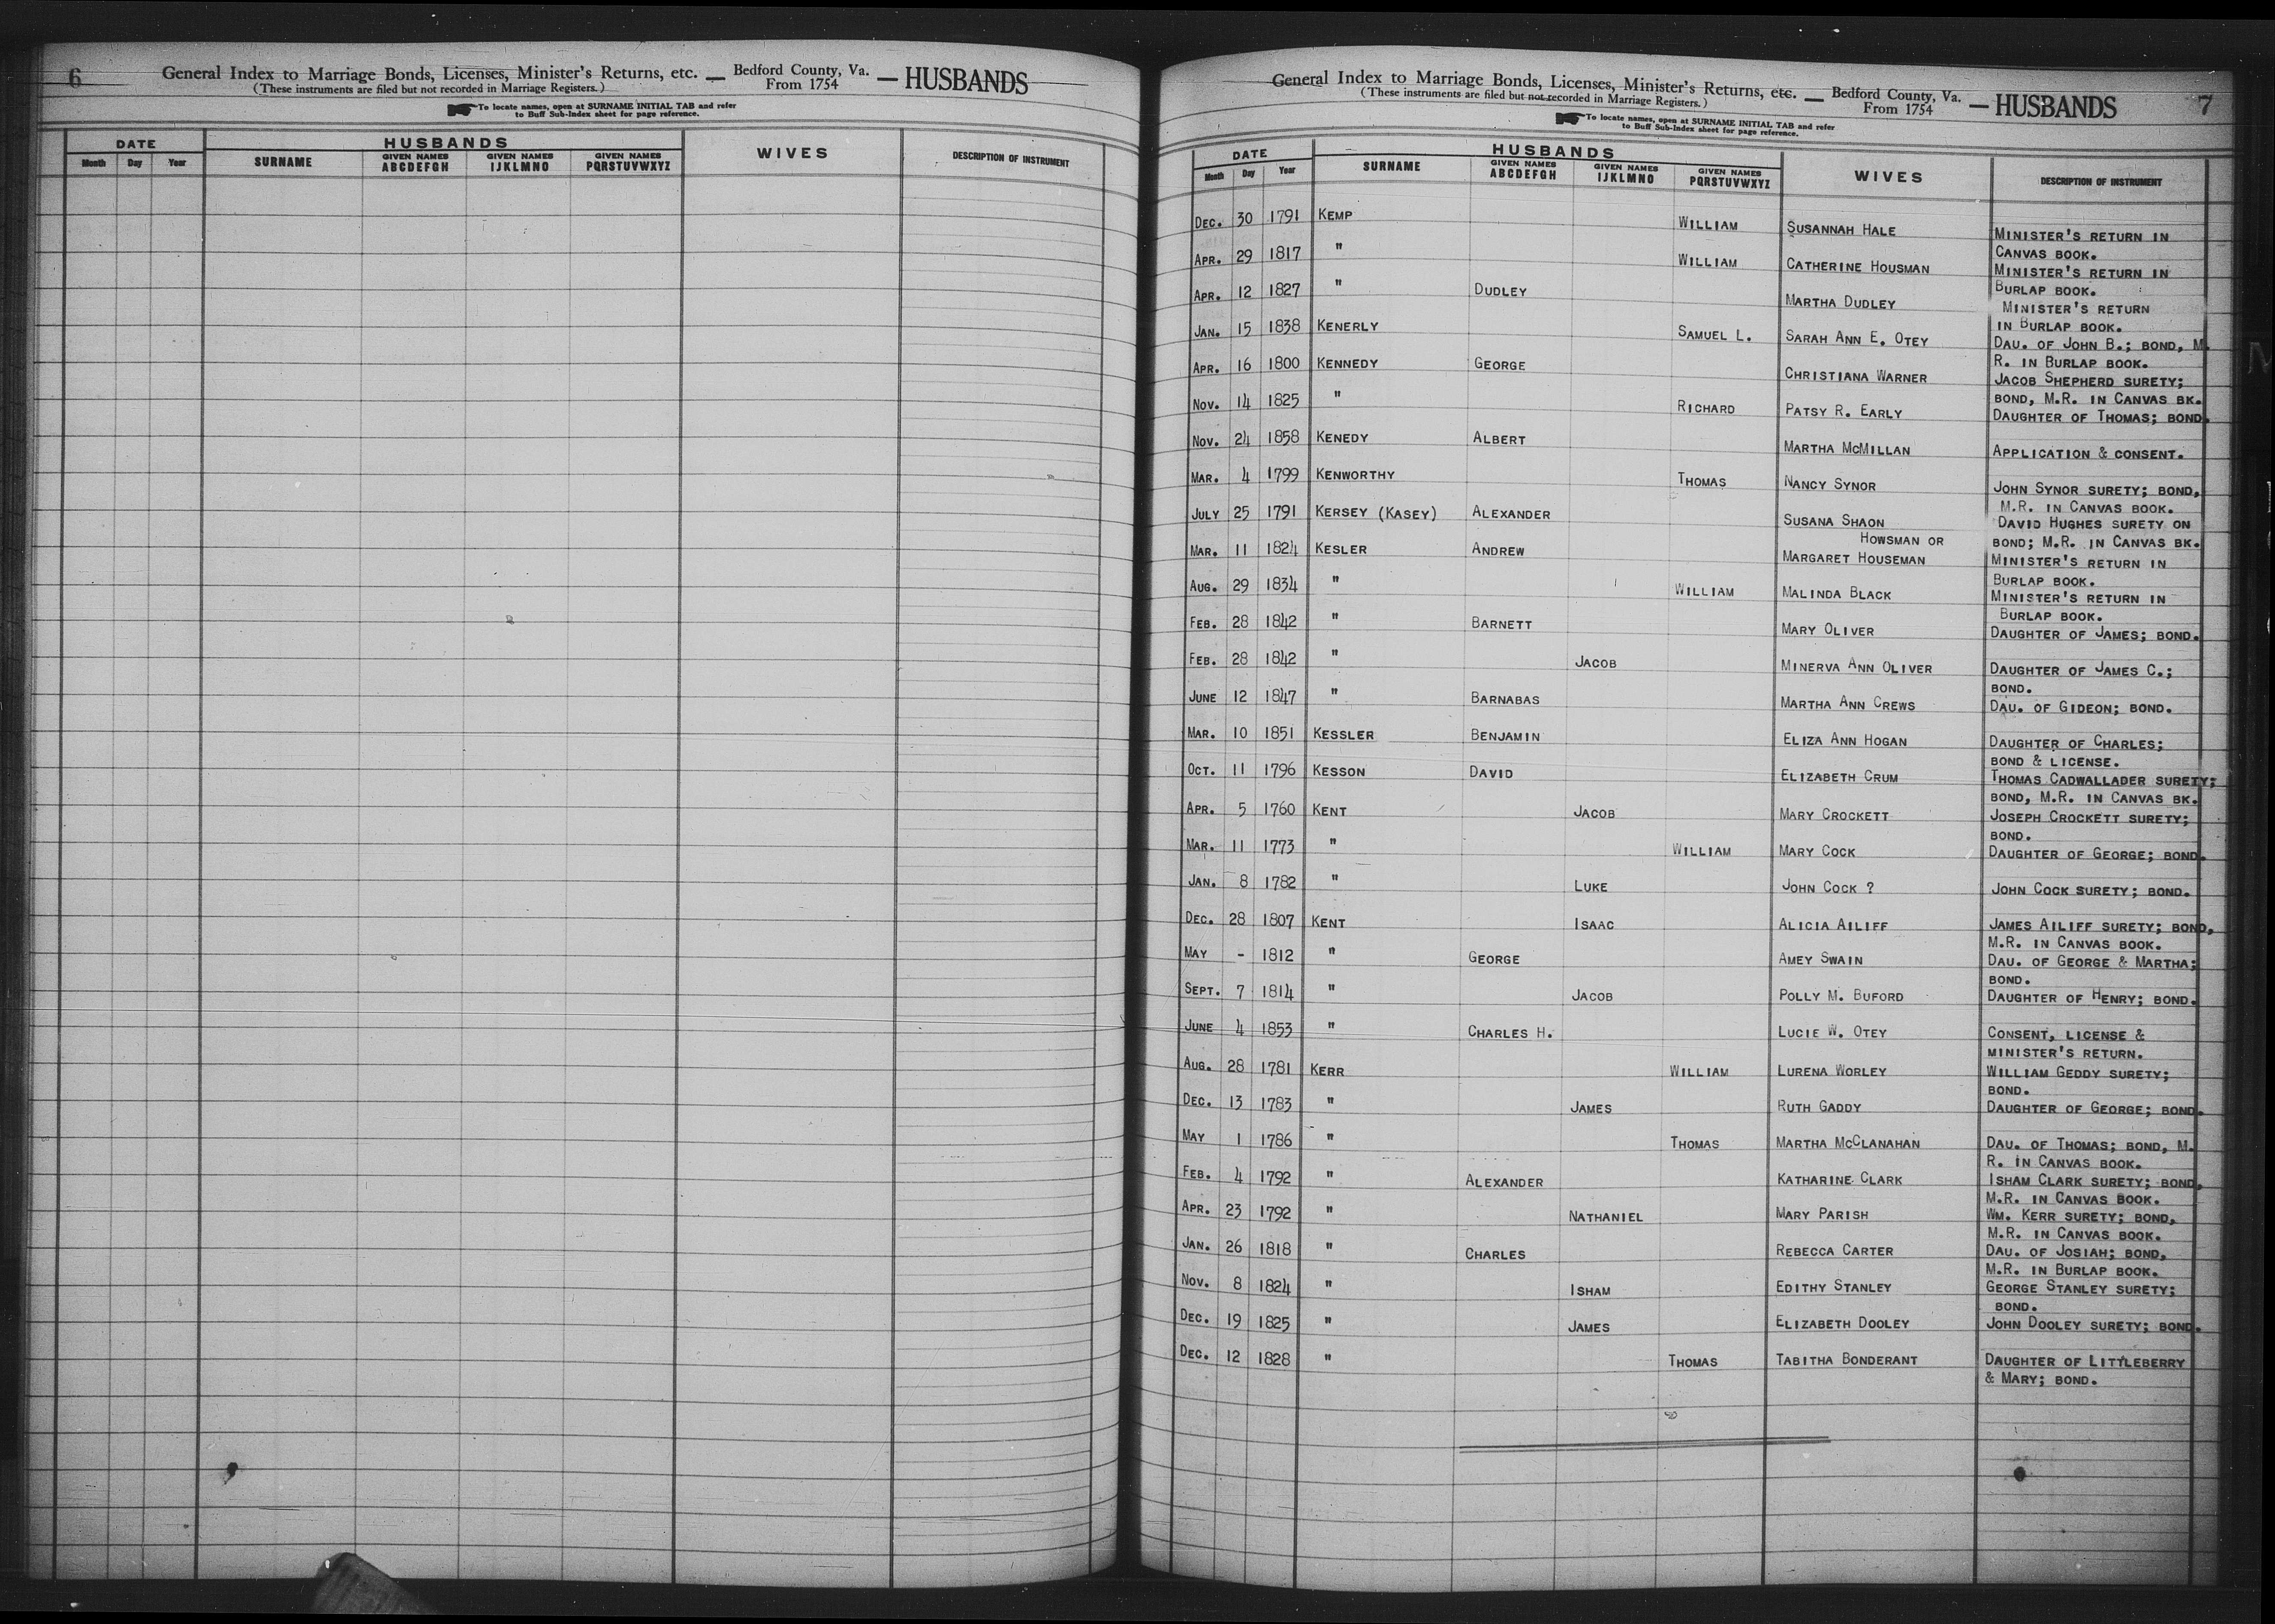 6
General Index to Marriage Bonds, Licenses, Minister's Returns, etc. — Bedford County, Va. From 1754 — HUSBANDS
(These instruments are filed but not recorded in Marriage Registers.)
To locate names, open at SURNAME INITIAL TAB and refer
to Buff Sub-Index sheet for page reference.
DATE HUSBANDS WIVES DESCRIPTION OF INSTRUMENT
Month Day Year SURNAME GIVEN NAMES ABCDEFGH GIVEN NAMES IJKLMNO GIVEN NAMES PQRSTUVWXYZ
General Index to Marriage Bonds, Licenses, Minister's Returns, etc. — Bedford County, Va. From 1754 — HUSBANDS 7
(These instruments are filed but not recorded in Marriage Registers.)
To locate names, open at SURNAME INITIAL TAB and refer
to Buff Sub-Index sheet for page reference.
DATE HUSBANDS WIVES DESCRIPTION OF INSTRUMENT
Month Day Year SURNAME GIVEN NAMES ABCDEFGH GIVEN NAMES IJKLMNO GIVEN NAMES PQRSTUVWXYZ
DEC. 30 1791 KEMP WILLIAM SUSANNAH HALE MINISTER'S RETURN IN
CANVAS BOOK.
APR. 29 1817 " WILLIAM CATHERINE HOUSMAN MINISTER'S RETURN IN
BURLAP BOOK.
APR. 12 1827 " DUDLEY MARTHA DUDLEY MINISTER'S RETURN
IN BURLAP BOOK.
JAN. 15 1838 KENERLY SAMUEL L. SARAH ANN E. OTEY DAU. OF JOHN B.; BOND, M.
R. IN BURLAP BOOK.
APR. 16 1800 KENNEDY GEORGE CHRISTIANA WARNER JACOB SHEPHERD SURETY;
BOND, M.R. IN CANVAS BK.
NOV. 14 1825 " RICHARD PATSY R. EARLY DAUGHTER OF THOMAS; BOND.
NOV. 24 1858 KENEDY ALBERT MARTHA MCMILLAN APPLICATION & CONSENT.
MAR. 4 1799 KENWORTHY THOMAS NANCY SYNOR JOHN SYNOR SURETY; BOND,
M.R. IN CANVAS BOOK.
JULY 25 1791 KERSEY (KASEY) ALEXANDER SUSANA SHAON DAVID HUGHES SURETY ON
BOND; M.R. IN CANVAS BK.
HOWSMAN OR
MAR. 11 1824 KESLER ANDREW MARGARET HOUSEMAN MINISTER'S RETURN IN
BURLAP BOOK.
AUG. 29 1834 " WILLIAM MALINDA BLACK MINISTER'S RETURN IN
BURLAP BOOK.
FEB. 28 1842 " BARNETT MARY OLIVER DAUGHTER OF JAMES; BOND.
FEB. 28 1842 " JACOB MINERVA ANN OLIVER DAUGHTER OF JAMES C.;
BOND.
JUNE 12 1847 " BARNABAS MARTHA ANN CREWS DAU. OF GIDEON; BOND.
MAR. 10 1851 KESSLER BENJAMIN ELIZA ANN HOGAN DAUGHTER OF CHARLES;
BOND & LICENSE.
OCT. 11 1796 KESSON DAVID ELIZABETH CRUM THOMAS CADWALLADER SURETY;
BOND, M.R. IN CANVAS BK.
APR. 5 1760 KENT JACOB MARY CROCKETT JOSEPH CROCKETT SURETY;
BOND.
MAR. 11 1773 " WILLIAM MARY COCK DAUGHTER OF GEORGE; BOND.
JAN. 8 1782 " LUKE JOHN COCK ? JOHN COCK SURETY; BOND.
DEC. 28 1807 KENT ISAAC ALICIA AILIFF JAMES AILIFF SURETY; BOND,
M.R. IN CANVAS BOOK.
MAY - 1812 " GEORGE AMEY SWAIN DAU. OF GEORGE & MARTHA;
BOND.
SEPT. 7 1814 " JACOB POLLY M. BUFORD DAUGHTER OF HENRY; BOND.
JUNE 4 1853 " CHARLES H. LUCIE W. OTEY CONSENT, LICENSE &
MINISTER'S RETURN.
AUG. 28 1781 KERR WILLIAM LURENA WORLEY WILLIAM GEDDY SURETY;
BOND.
DEC. 13 1783 " JAMES RUTH GADDY DAUGHTER OF GEORGE; BOND.
MAY 1 1786 " THOMAS MARTHA MCCLANAHAN DAU. OF THOMAS; BOND, M.
R. IN CANVAS BOOK.
FEB. 4 1792 " ALEXANDER KATHARINE CLARK ISHAM CLARK SURETY; BOND,
M.R. IN CANVAS BOOK.
APR. 23 1792 " NATHANIEL MARY PARISH WM. KERR SURETY; BOND,
M.R. IN CANVAS BOOK.
JAN. 26 1818 " CHARLES REBECCA CARTER DAU. OF JOSIAH; BOND,
M.R. IN BURLAP BOOK.
NOV. 8 1824 " ISHAM EDITHY STANLEY GEORGE STANLEY SURETY;
BOND.
DEC. 19 1825 " JAMES ELIZABETH DOOLEY JOHN DOOLEY SURETY; BOND.
DEC. 12 1828 " THOMAS TABITHA BONDERANT DAUGHTER OF LITTLEBERRY
& MARY; BOND.